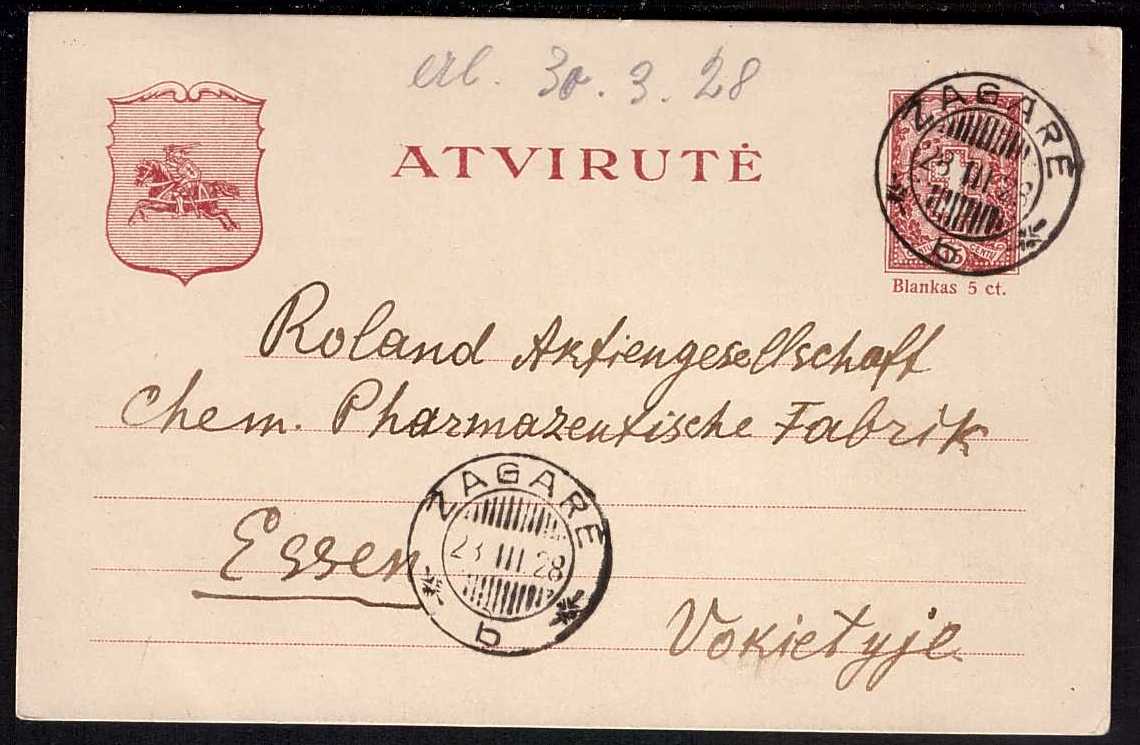 erl. 30.3.28
ATVIRUTĖ
ŽAGARĖ
23 III 28
b
Blankas 5 ct.
Roland Aktiengesellschaft
Chem. Pharmazeutische Fabrik
ŽAGARĖ
23 III 28
b
Essen
Vokietyje